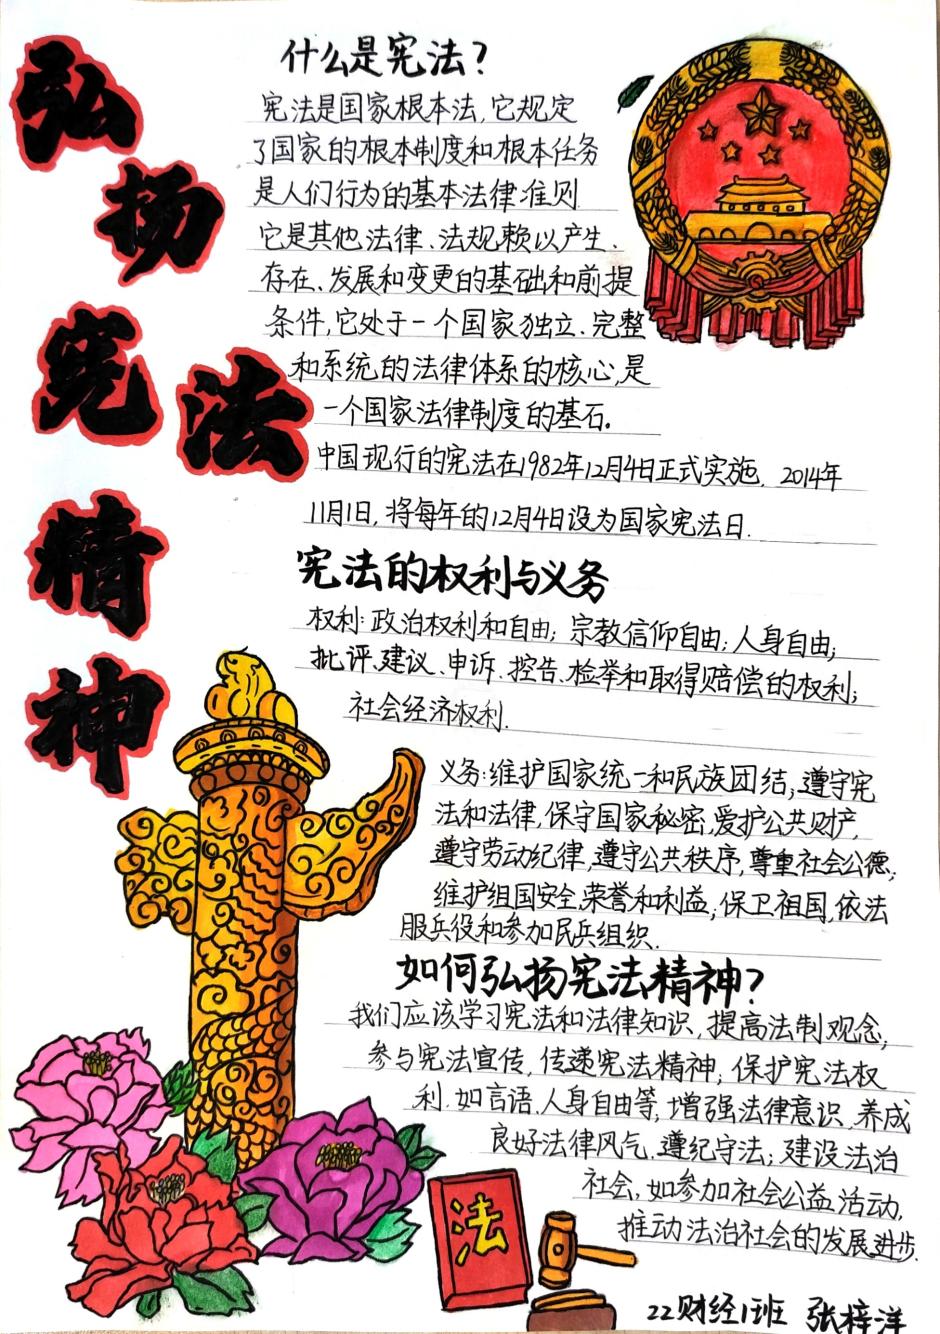 弘扬宪法精神
什么是宪法?
宪法是国家根本法,它规定
了国家的根本制度和根本任务
是人们行为的基本法律准则.
它是其他法律、法规赖以产生、
存在、发展和变更的基础和前提
条件,它处于一个国家独立、完整
和系统的法律体系的核心,是
一个国家法律制度的基石。
中国现行的宪法在1982年12月4日正式实施. 2014年
11月1日,将每年的12月4日设为国家宪法日.
宪法的权利与义务
权利:政治权利和自由;宗教信仰自由;人身自由;
批评、建议、申诉、控告、检举和取得赔偿的权利;
社会经济权利.
义务:维护国家统一和民族团结;遵守宪
法和法律,保守国家秘密,爱护公共财产,
遵守劳动纪律,遵守公共秩序,尊重社会公德;
维护组国安全,荣誉和利益;保卫祖国,依法
服兵役和参加民兵组织.
如何弘扬宪法精神?
我们应该学习宪法和法律知识,提高法制观念;
参与宪法宣传,传递宪法精神;保护宪法权
利.如言语、人身自由等,增强法律意识,养成
良好法律风气,遵纪守法;建设法治
社会,如参加社会公益活动,
推动法治社会的发展进步.
法
22财经1班 张梓洋